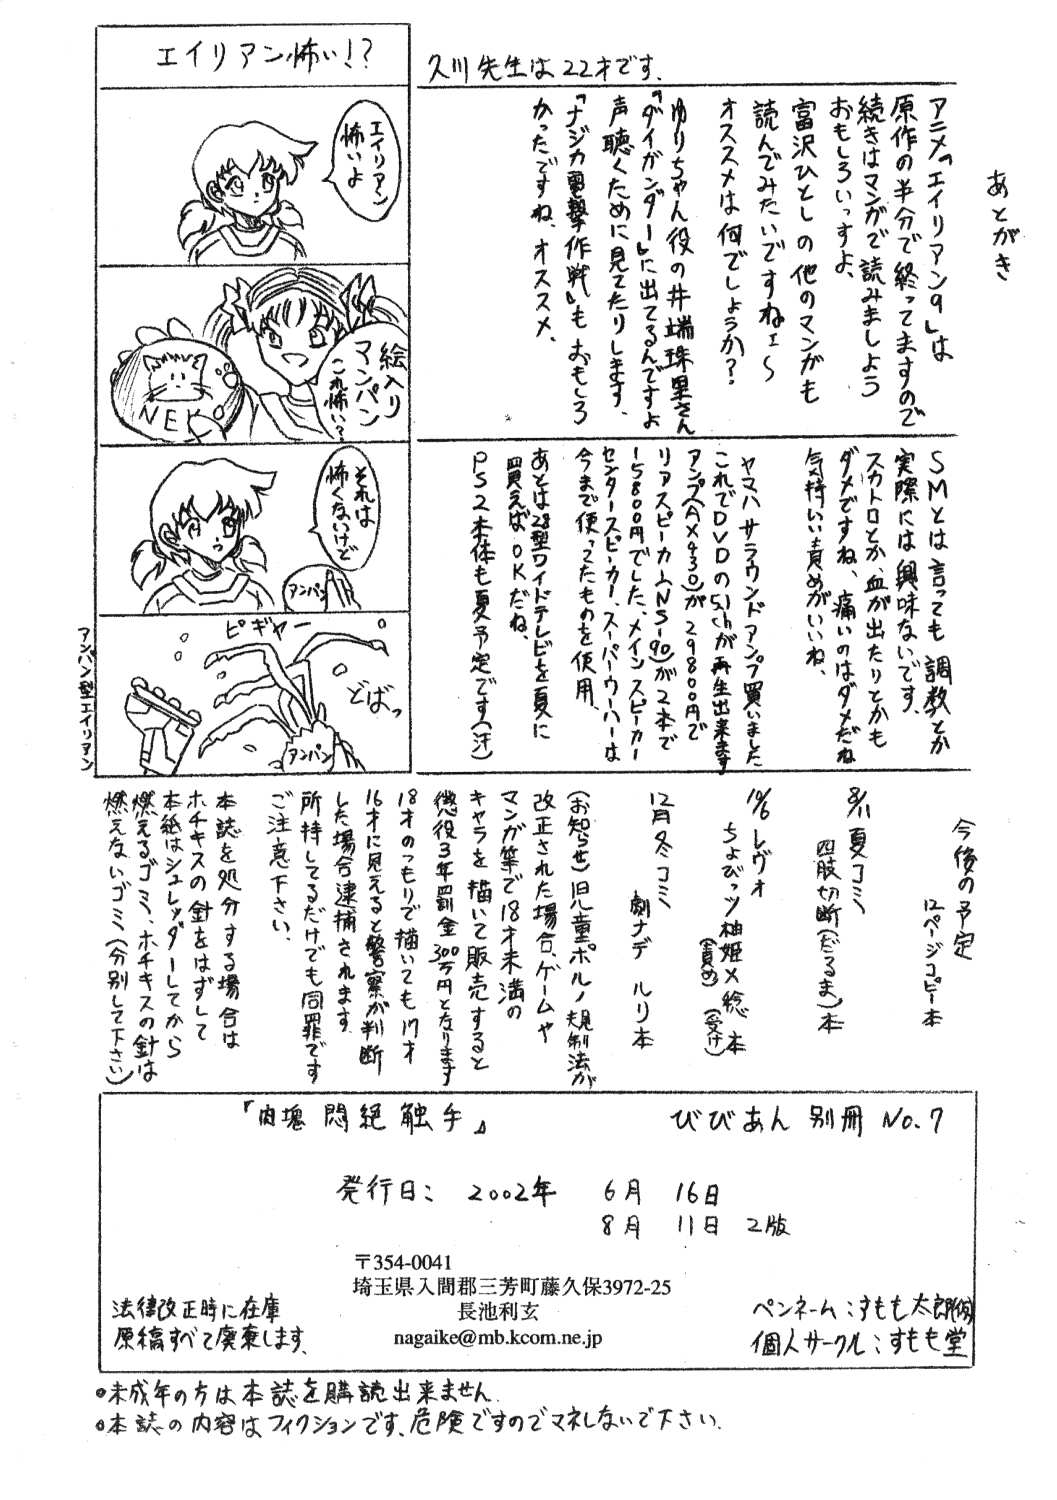 あとがき
アニメ『エイリアン9』は
原作の半分で終ってますので
続きはマンガで読みましよう
おもしろいっすよ、
富沢ひとしの他のマンガも
読んでみたいですねェ〜
オススメは何でしょうか?
ゆりちゃん役の井端珠里さん
『ダイガンダー』に出てるんですよ
声聴くために見てたりします、
『ナジカ電撃作戦』もおもしろ
かったですね、オススメ、
久川先生は22才です.
エイリアン怖い!?
エイリアン
怖いよ
絵入り
マンパン
これ怖い?
NEK
それは
怖くないけど
アンパン
ピギャー
どばっ
アンパン
アンパン型エイリアン
SMとは言っても調教とか
実際には興味ないです。
スカトロとか、血が出たりとかも
ダメですね、痛いのはダメだね
気持いい責めがいいね、
ヤマハサラウンドアンプ買いました
これでDVDの5.1chが再生出来ます
アンプ(AX430)が29800円で
リアスピーカー(NS-90)が2本で
15800円でした、メインスピーカー
センタースピーカー、スーパーウーハーは
今まで使ってたものを使用、
あとは28型ワイドテレビを夏に
買えばOKだね、
PS2本体も夏予定です(汗)
今後の予定
12ページコピー本
8/11夏コミ
四肢切断(だるま)本
10/6レヴォ
ちょびっツ柚姫×稔本
(責め) (受け)
12月冬コミ
劇ナデ ルリ本
(お知らせ)児童ポルノ規制法が
改正された場合、ゲームや
マンガ等で18才未満の
キャラを描いて販売すると
懲役3年罰金300万円となります
18才のつもりで描いても17才
16才に見えると警察が判断
した場合逮捕されます
所持してるだけでも同罪です
ご注意下さい.
本誌を処分する場合は
ホチキスの針をはずして
本紙はシュレッダーしてから
燃えるゴミ、ホチキスの針は
燃えないゴミ(分別して下さい)
『肉塊 悶絶触手』 びびあん 別冊 No.7
発行日: 2002年 6月 16日
8月 11日 2版
〒354-0041
埼玉県入間郡三芳町藤久保3972-25
長池利玄
nagaike@mb.kcom.ne.jp
法律改正時に在庫
原稿すべて廃棄します.
ペンネーム:すもも太郎(仮)
個人サークル:すもも堂
●未成年の方は本誌を購読出来ません.
●本誌の内容はフィクションです、危険ですのでマネしないで下さい.